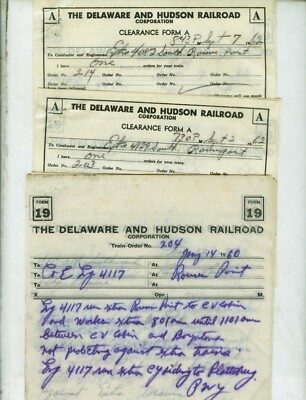 A THE DELAWARE AND HUDSON RAILROAD A
CORPORATION
CLEARANCE FORM A
843 P Sept 7, 1962
To Conductor and Engineman Extra 4082 South Rouses Point
I have one orders for your train.
Order No. 214 Order No. Order No. Order No.
Order No. Order No. Order No.
A THE DELAWARE AND HUDSON RAILROAD A
CORPORATION
CLEARANCE FORM A
730 P Sept 2, 1962
To Conductor and Engineman Extra 4129 South
I have one orders for your train.
Order No. 203 Order No. Order No. Order No.
FORM 19 FORM 19
THE DELAWARE AND HUDSON RAILROAD
CORPORATION
Train Order No. 204
14 1960
To C & E Eng 4117 At Rouses Point
To At
To At
X Opr. M.
Eng 4117 run extra Rouses Point to CV Cabin
and Works extra 801 am until 1101 am
between CV Cabin and
not protecting against extra trains
Eng 4117 run extra CV siding to Plattsburg